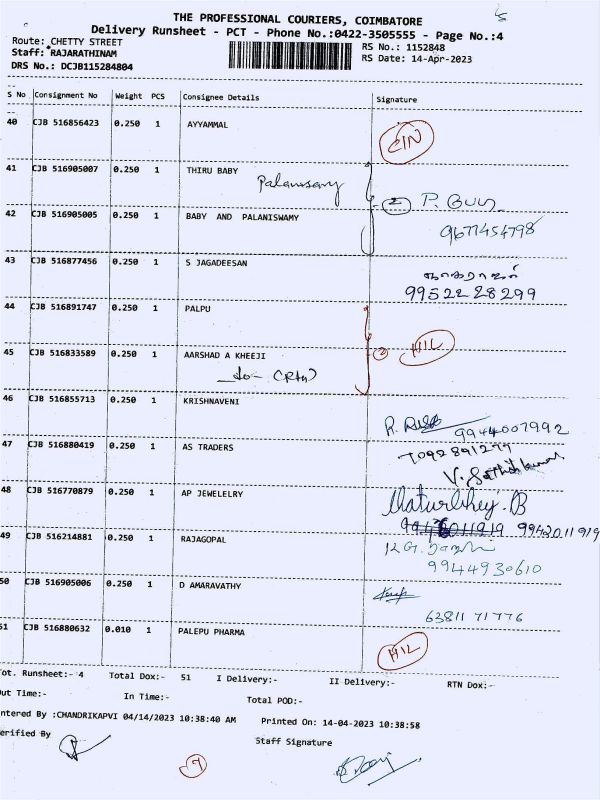 THE PROFESSIONAL COURIERS, COIMBATORE
Delivery Runsheet - PCT - Phone No.:0422-3505555 - Page No.:4
Route: CHETTY STREET
RS No.: 1152848
Staff: RAJARATHINAM
RS Date: 14-Apr-2023
DRS No.: DCJB115284804
S No Consignment No Weight PCS Consignee Details Signature
40 CJB 516856423 0.250 1 AYYAMMAL
41 CJB 516905007 0.250 1 THIRU BABY
Palanisamy
42 CJB 516905005 0.250 1 BABY AND PALANISWAMY
2
9677454798
43 CJB 516877456 0.250 1 S JAGADEESAN
நாகராஜன்
9952228299
44 CJB 516891747 0.250 1 PALPU
45 CJB 516833589 0.250 1 AARSHAD A KHEEJI
2 H/L
-do-
46 CJB 516855713 0.250 1 KRISHNAVENI
9944007992
47 CJB 516880419 0.250 1 AS TRADERS
7092891299
V. Sathishkumar
48 CJB 516770879 0.250 1 AP JEWELELRY
9942011919
49 CJB 516214881 0.250 1 RAJAGOPAL
9944930610
50 CJB 516905006 0.250 1 D AMARAVATHY
63811 71776
51 CJB 516880632 0.010 1 PALEPU PHARMA
H/L
Tot. Runsheet:- 4 Total Dox:- 51 I Delivery:- II Delivery:- RTN Dox:-
Out Time:- In Time:- Total POD:-
Entered By :CHANDRIKAPVI 04/14/2023 10:38:40 AM Printed On: 14-04-2023 10:38:58
Verified By
Staff Signature
7